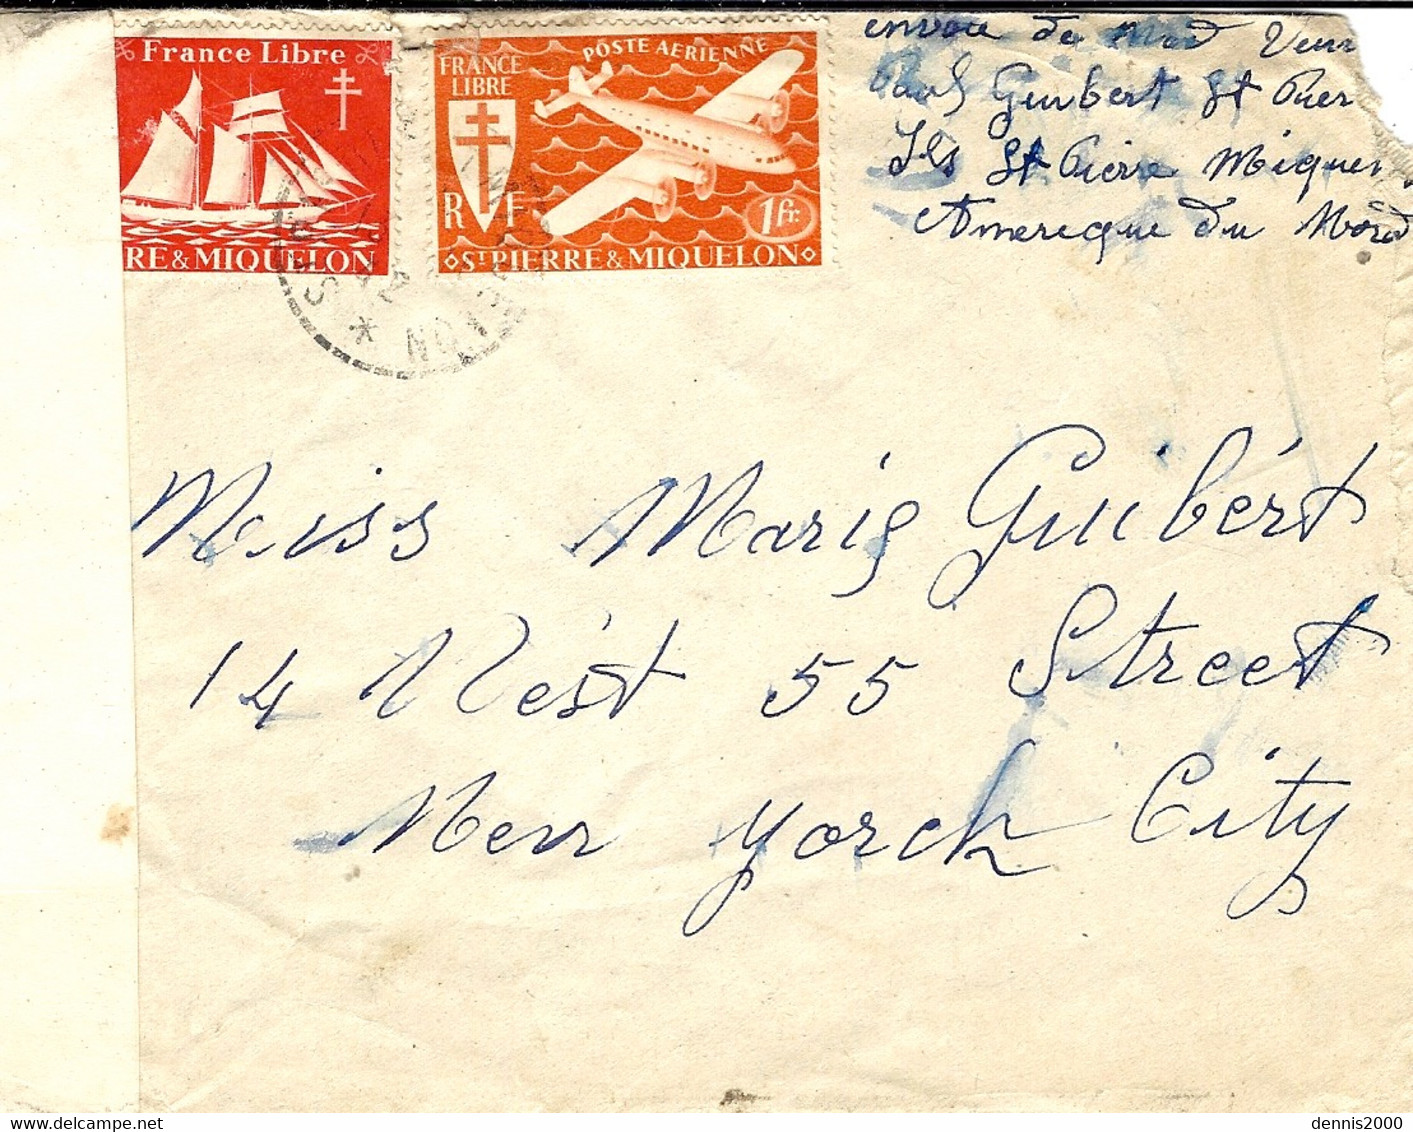 France Libre
RE & MIQUELON
POSTE AERIENNE
FRANCE
LIBRE
RF
1fr.
ST PIERRE & MIQUELON
envoie de Mad Veuv
Paul Guibert St Pier
Iles St Pierre Miquel
Amerique du Nord
Miss Marie Guibért
14 West 55 Street
New Yorck City
dennis2000